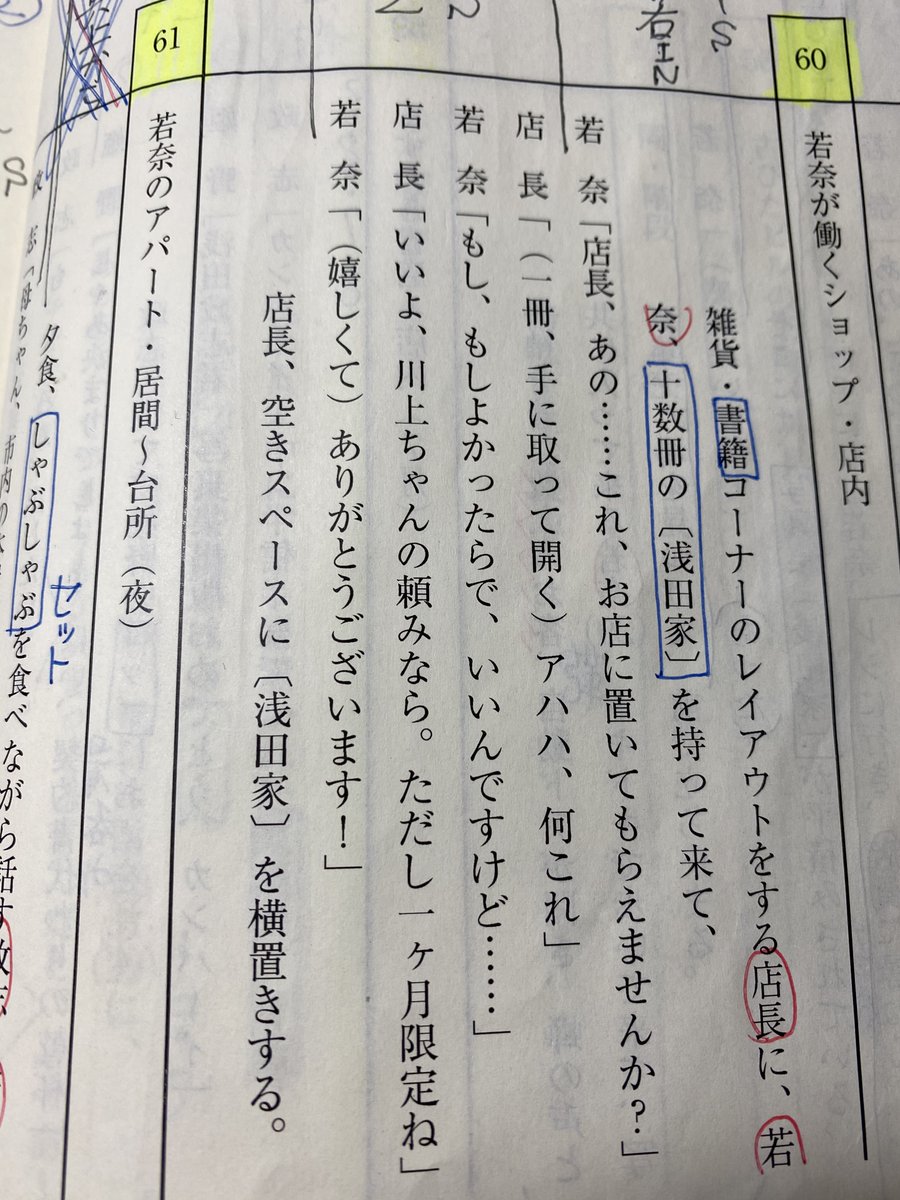 60
若奈が働くショップ・店内
雑貨・書籍コーナーのレイアウトをする店長に、若
奈、十数冊の〔浅田家〕を持って来て、
若　奈「店長、あの……これ、お店に置いてもらえませんか？」
店　長「（一冊、手に取って開く）アハハ、何これ」
若　奈「もし、もしよかったらで、いいんですけど……」
店　長「いいよ、川上ちゃんの頼みなら。ただし一ヶ月限定ね」
若　奈「（嬉しくて）ありがとうございます！」
店長、空きスペースに〔浅田家〕を横置きする。
61
若奈のアパート・居間～台所（夜）
セット
夕食、しゃぶしゃぶを食べながら話す
「母ちゃん、市内の